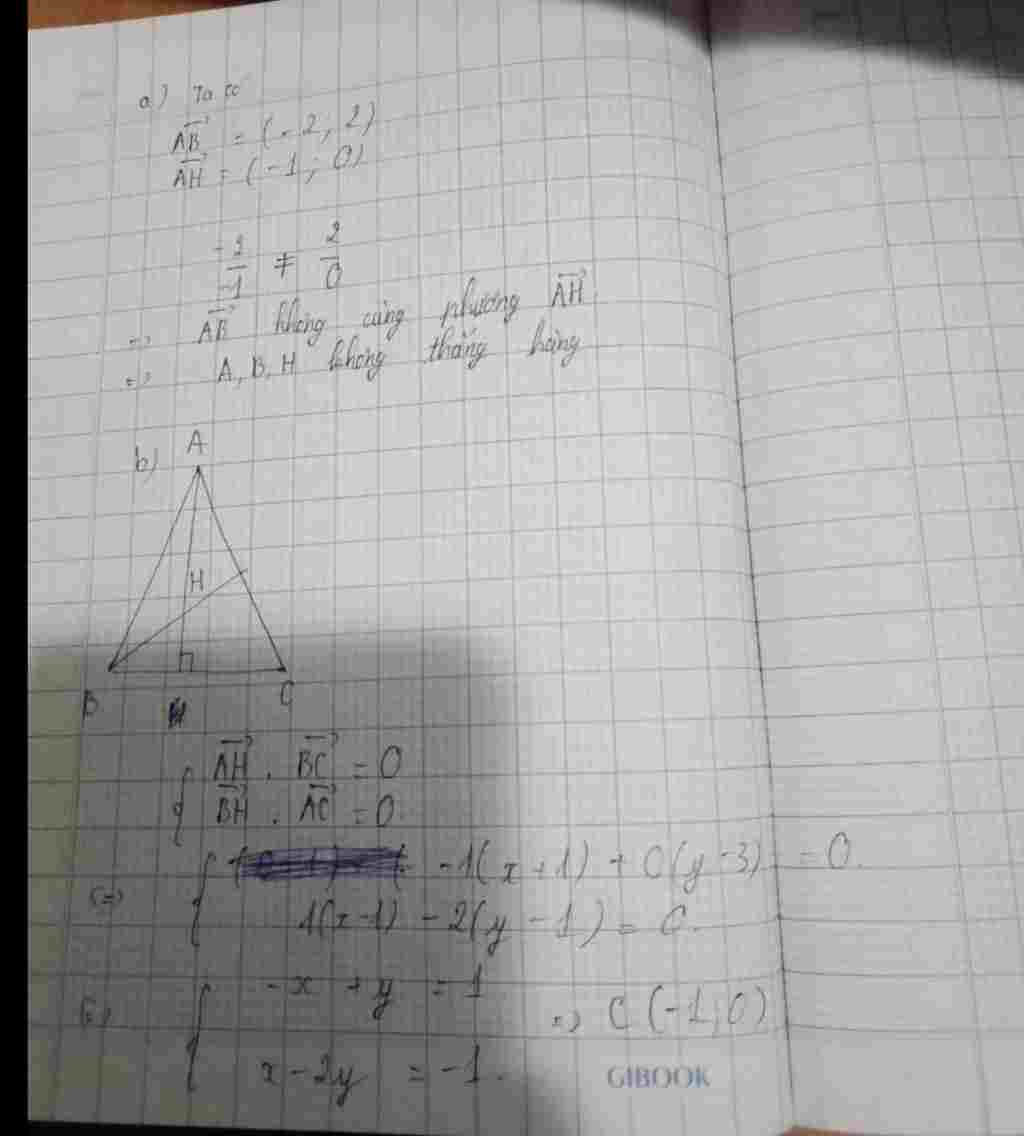 a) Ta có
AB = (-2; 2)
AH = (-1; 0)
-2/-1 ≠ 2/0
=> AB không cùng phương AH
=> A, B, H không thẳng hàng
b)
A
H
B
C
{ AH . BC = 0
BH . AC = 0
(=) { -1(x+1) + 0(y-3) = 0.
1(x-1) - 2(y-1) = 0.
{ -x + y = 1
=> C(-1; 0)
x - 2y = -1.
GIBOOK